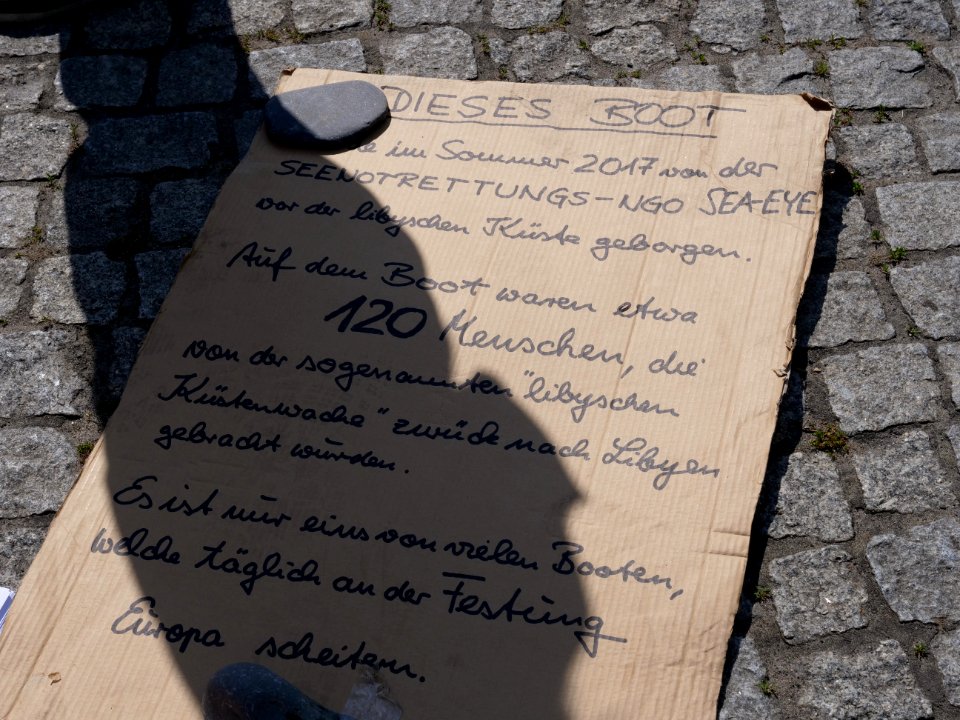 DIESES BOOT
im Sommer 2017 von der
SEENOTRETTUNGS-NGO SEA-EYE
vor der libyschen Küste geborgen.
Auf dem Boot waren etwa
120 Menschen, die
von der sogenannten "libyschen
Küstenwache" zurück nach Libyen
gebracht wurden.
Es ist nur eins von vielen Booten,
welche täglich an der Festung
Europa scheitern.